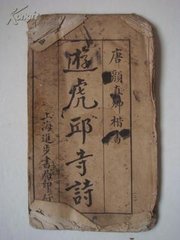 唐顏真卿楷書
遊虎邱寺詩
上海進步書局印行